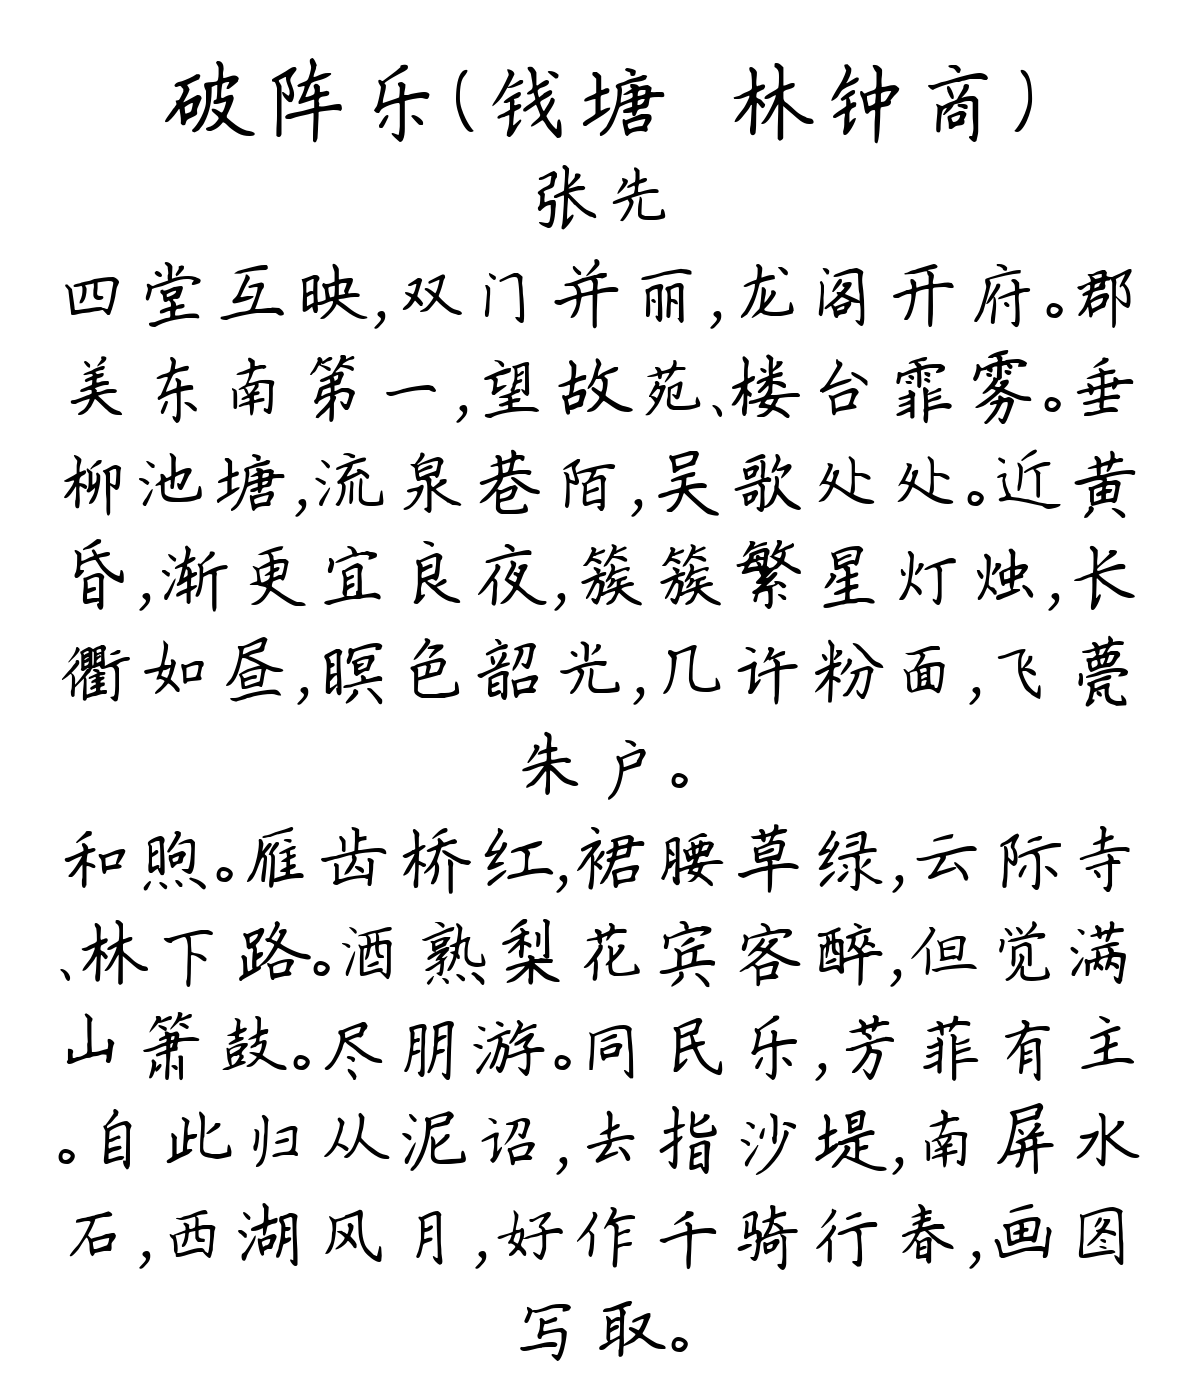 破阵乐(钱塘 林钟商)
张先
四堂互映,双门并丽,龙阁开府。郡
美东南第一,望故苑、楼台霏雾。垂
柳池塘,流泉巷陌,吴歌处处。近黄
昏,渐更宜良夜,簇簇繁星灯烛,长
衢如昼,暝色韶光,几许粉面,飞甍
朱户。
和煦。雁齿桥红,裙腰草绿,云际寺
、林下路。酒熟梨花宾客醉,但觉满
山箫鼓。尽朋游。同民乐,芳菲有主
。自此归从泥诏,去指沙堤,南屏水
石,西湖风月,好作千骑行春,画图
写取。